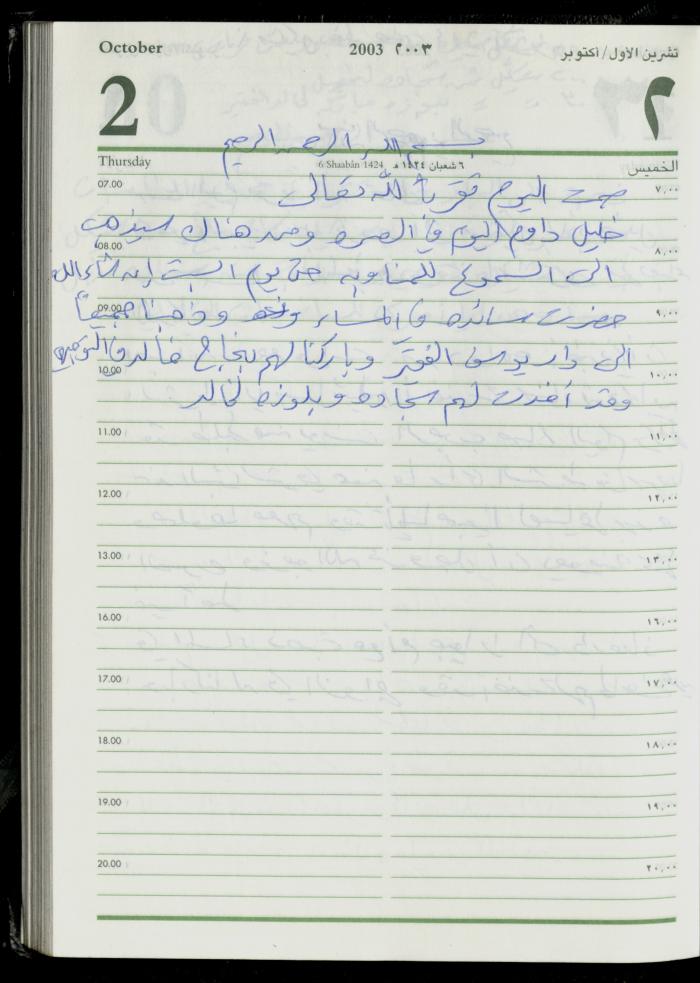 October 2003 ٢٠٠٣ تشرين الأول/أكتوبر
2 ٢
بسم الله الرحمن الرحيم
Thursday 6 Shaabān 1424 ٦ شعبان ١٤٢٤ هـ الخميس
07.00 ٧,٠٠
صمت اليوم تقرباً لله تعالى
خليل داوم اليوم في المصره ومن هناك سيذهب
08.00 ٨,٠٠
الى السموع للمناوبه حتى يوم السبت إن شاء الله
09.00 ٩,٠٠
حضرت سائده في المساء وذهبنا جميعاً
الى دار يوسف الفقير وباركنا لهم بنجاح خالد في التوجيهي
10.00 ١٠,٠٠
وقد أخذت لهم سجاده وبلوزه لخالد
11.00 ١١,٠٠
12.00 ١٢,٠٠
13.00 ١٣,٠٠
16.00 ١٦,٠٠
17.00 ١٧,٠٠
18.00 ١٨,٠٠
19.00 ١٩,٠٠
20.00 ٢٠,٠٠